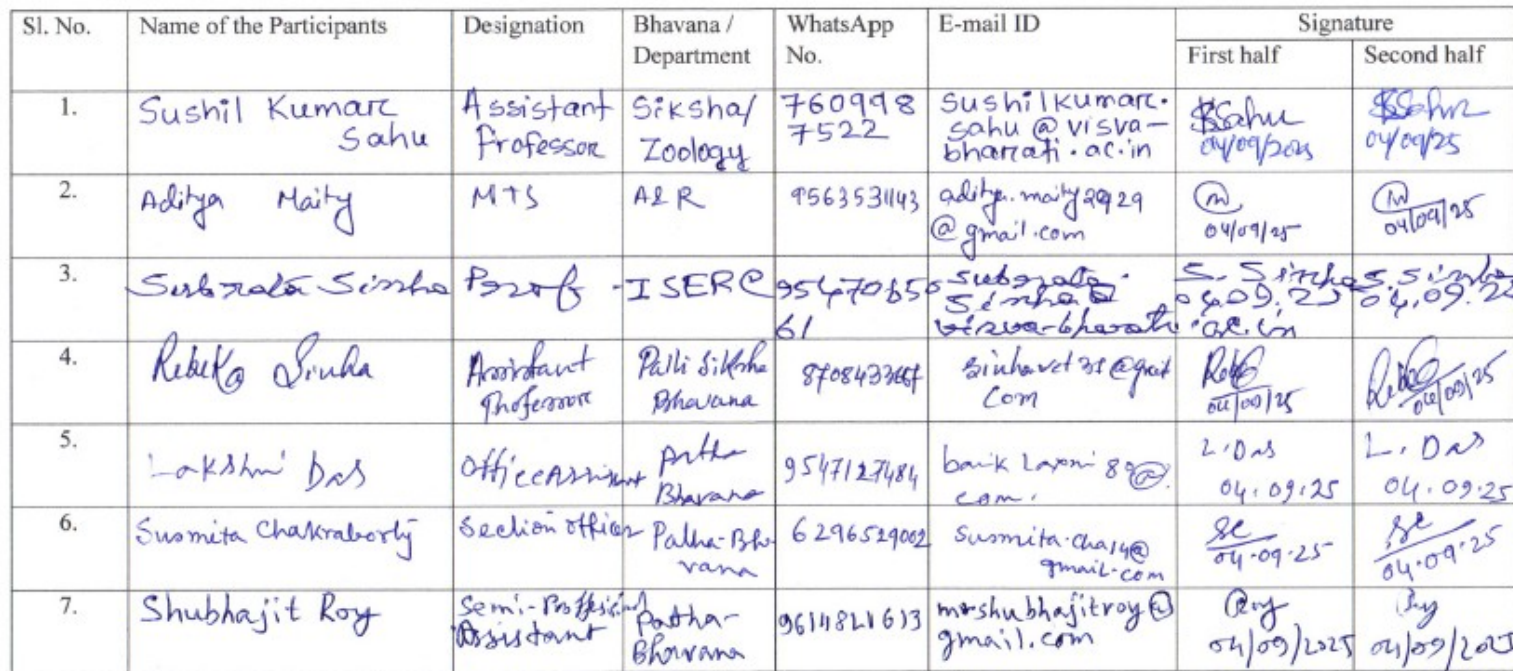 Sl. No. Name of the Participants Designation Bhavana / Department WhatsApp No. E-mail ID Signature
First half Second half
1. Sushil Kumar Sahu Assistant Professor Siksha/ Zoology 7609987522 sushilkumar.sahu@visva-bharati.ac.in SSahu 04/09/2025 SSahu 04/09/25
2. Aditya Maity MTS A&R 9563531143 @gmail.com 04/09/25 04/09/25
3. Subrata Sinha Prof ISERC 9547065061 subrata.sinha@visva-bharati.ac.in S. Sinha 04.09.25 S. Sinha 04.09.25
4. Rebeka Sinha Assistant Professor Palli Siksha Bhavana com 04/09/25 04/09/25
5. Lakshmi Das Office Assistant Patha Bhavana 9547127484 com. L. Das 04.09.25 L. Das 04.09.25
6. Susmita Chakraborty Section Officer Patha-Bhavana 6296529002 susmita.cha14@gmail.com SC 04.09.25 SC 04.09.25
7. Shubhajit Roy Semi-Professional Assistant Patha-Bhavana 9614821613 mrshubhajitroy@gmail.com Roy 04/09/2025 Roy 04/09/2025